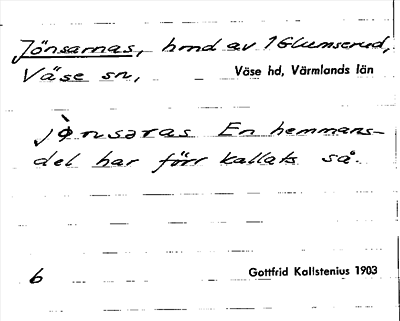 Jönsarnas, hmd av 1 Glumserud,
Väse sn, Väse hd, Värmlands län
jò̦nsəras En hemmans-
del har förr kallats så.
6 Gottfrid Kallstenius 1903